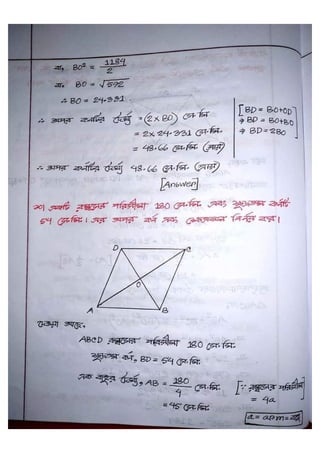 বা, BO² = 1184/2
বা, BO = √592
∴ BO = 24.331
∴ অপর কর্ণটির দৈর্ঘ্য = (2×BO) সে.মি.
= 2×24.331 সে.মি.
= 48.66 সে.মি. (প্রায়)
[BD = BO+OD
⇒ BD = BO+BO
⇒ BD = 2BO]
∴ অপর কর্ণটির দৈর্ঘ্য 48.66 সে.মি. (প্রায়)
[Answer]
একটি রম্বসের পরিসীমা 180 সে.মি. এবং ক্ষুদ্রতম কর্ণটি
54 সে.মি.। এর অপর কর্ণ এবং ক্ষেত্রফল নির্ণয় কর।
D C
O
A B
দেওয়া আছে,
ABCD রম্বসের পরিসীমা 180 সে.মি.
ক্ষুদ্রতম কর্ণ, BD = 54 সে.মি.
এক বাহুর দৈর্ঘ্য, AB = 180/4 সে.মি.
= 45 সে.মি.
[∵ রম্বসের পরিসীমা
= 4a
a = arm = বাহু